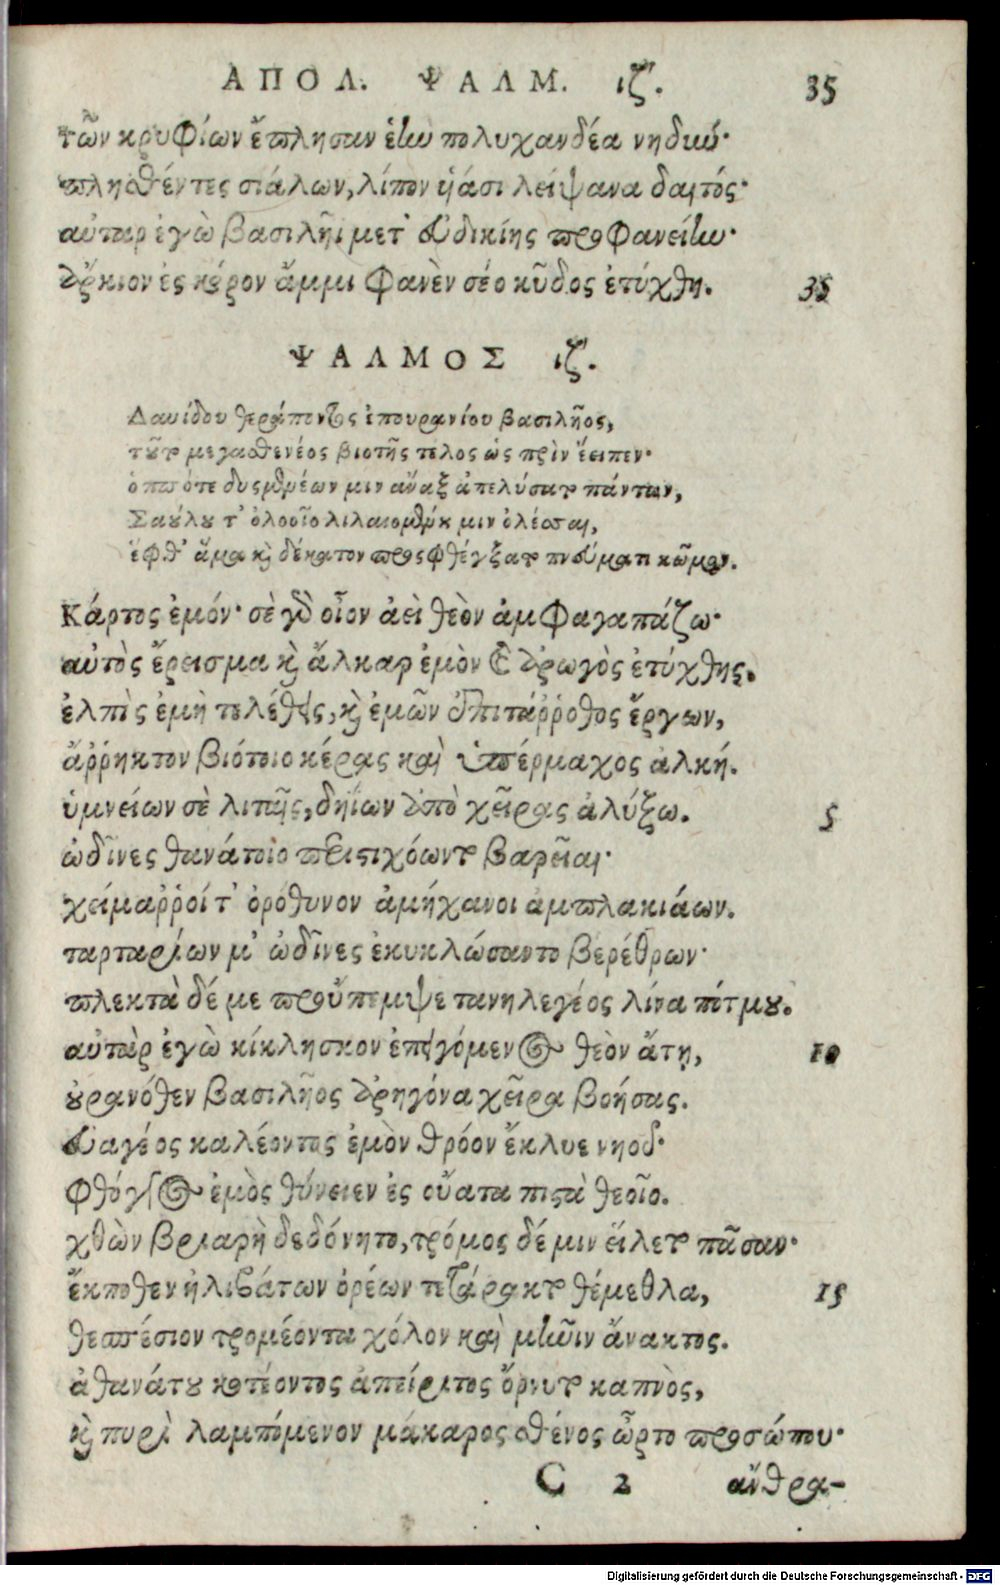 ΑΠΟΛ. ΨΑΛΜ. ιζ'. 35
τῶν κρυφίων ἔπλησαν ἑὴν πολυχανδέα νηδύν·
πλησθέντες σιάλων, λίπον υἱάσι λείψανα δαιτός·
αὐτὰρ ἐγὼ βασιλῆι μετ' εὐδικίης προφανείην·
ἄρκιον ἐς κόρον ἄμμι φανὲν σέο κῦδος ἐτύχθη. 35
ΨΑΛΜΟΣ ιζ'.
Δαυίδου θεράποντος ἐπουρανίου βασιλῆος,
τοῦτο μεγασθενέος βιοτῆς τέλος ὡς πρὶν ἔειπεν·
ὁππότε δυσμενέων μιν ἄναξ ἀπελύσατο πάντων,
Σαούλου τ' ὀλοοῖο λιλαιομένοιο μιν ὀλέσσαι,
ἕφθ' ἅμα καὶ δέκατον προσφθέγξατο πνεύματι κῶμον.
Κάρτος ἐμόν· σὲ γὰρ οἶον ἀεὶ θεὸν ἀμφαγαπάζω·
αὐτὸς ἔρεισμα καὶ ἄλκαρ ἐμὸν καὶ ἀρωγὸς ἐτύχθης.
ἐλπὶς ἐμὴ τελέθεις, καὶ ἐμῶν ἐπιτάῤῥοθος ἔργων,
ἄῤῥηκτον βιότοιο κέρας καὶ ὑπέρμαχος ἀλκή.
ὑμνείων σὲ λιταῖς, δηίων ὑπὸ χεῖρας ἀλύξω. 5
ὠδῖνες θανάτοιο περιστιχόωντο βαρεῖαι·
χείμαῤῥοί τ' ὀρόθυνον ἀμήχανοι ἀμπλακιάων.
ταρταρίων μ' ὠδῖνες ἐκυκλώσαντο βερέθρων·
πλεκτὰ δέ με προὔπεμψε τανηλεγέος λίνα πότμου.
αὐτὰρ ἐγὼ κίκλησκον ἐπειγόμενος θεὸν ἄτῃ, 10
οὐρανόθεν βασιλῆος ἀρηγόνα χεῖρα βοήσας.
εὐαγέος καλέοντος ἐμὸν θρόον ἔκλυε νηοῦ·
φθόγγος ἐμὸς θύνειεν ἐς οὔατα πιστὰ θεοῖο.
χθὼν βριαρὴ δεδόνητο, τρόμος δέ μιν εἵλετο πᾶσαν·
ἔκποθεν ἠλιβάτων ὀρέων τετάρακτο θέμεθλα, 15
θεσπέσιον τρομέοντα χόλον καὶ μῆνιν ἄνακτος.
ἀθανάτου κοτέοντος ἀπείριτος ὄρνυτο καπνὸς,
καὶ πυρὶ λαμπόμενον μάκαρος σθένος ὦρτο προσώπου·
C 2 ἄνθρα-
Digitalisierung gefördert durch die Deutsche Forschungsgemeinschaft - DFG